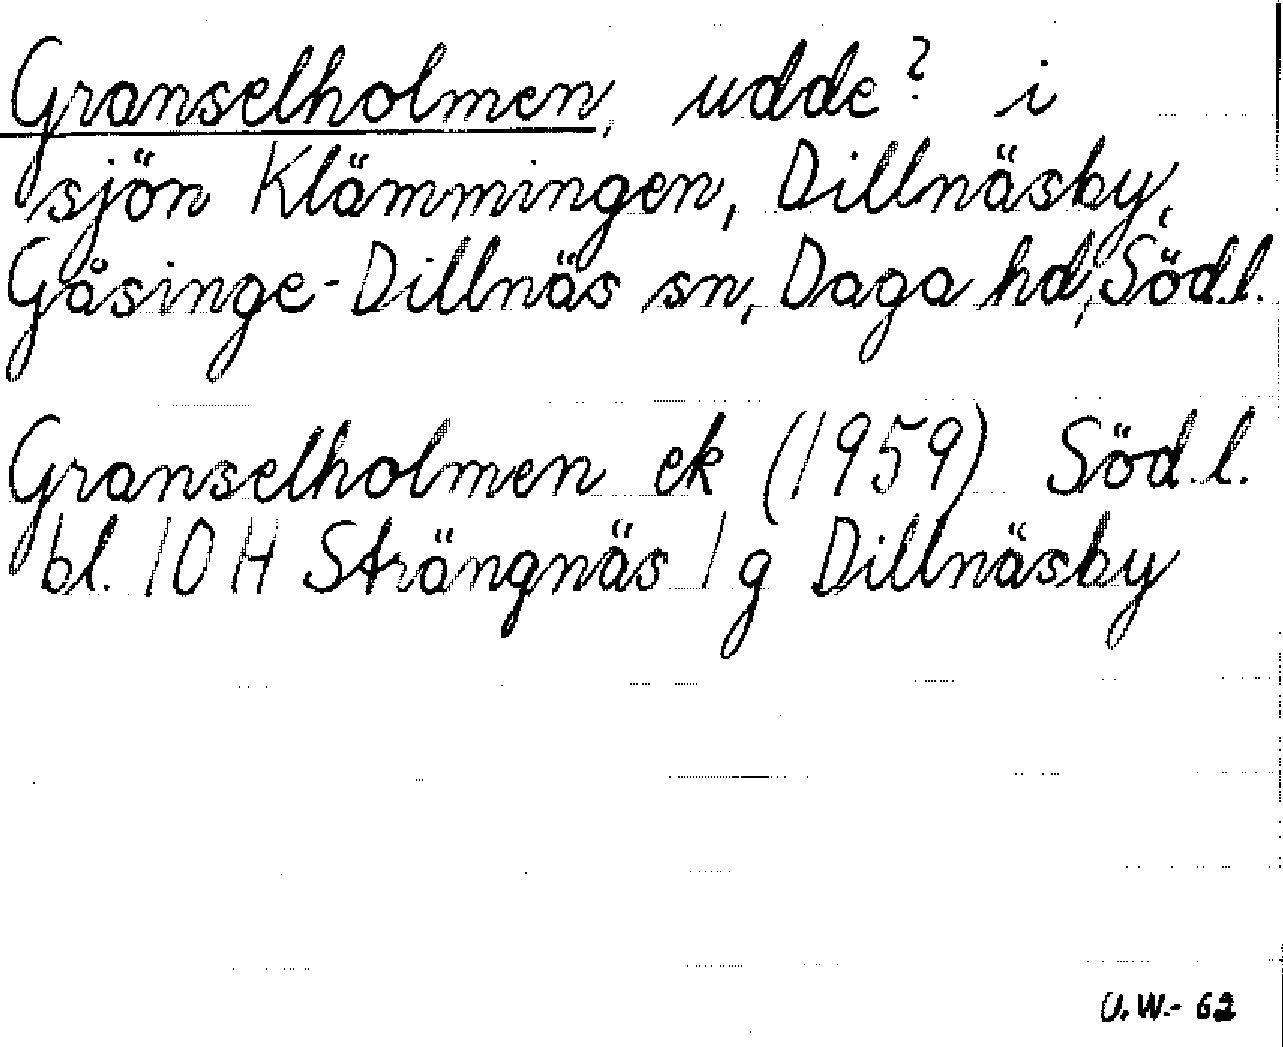 Granselholmen, udde? i
sjön Klämmingen, Dillnäsby,
Gåsinge-Dillnäs sn, Daga hd, Söd.l.
Granselholmen ek (1959) Söd.l.
bl. 10 H Strängnäs 1 g Dillnäsby
U.W.- 62